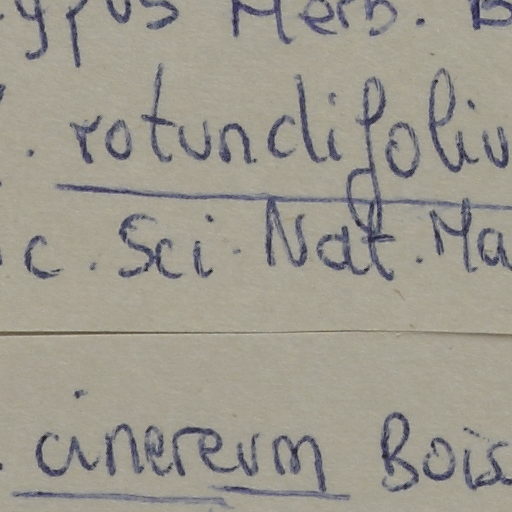 ypus Herb. B
. rotundifoliu
c. Sci. Nat. Ma
. cinereum Bois